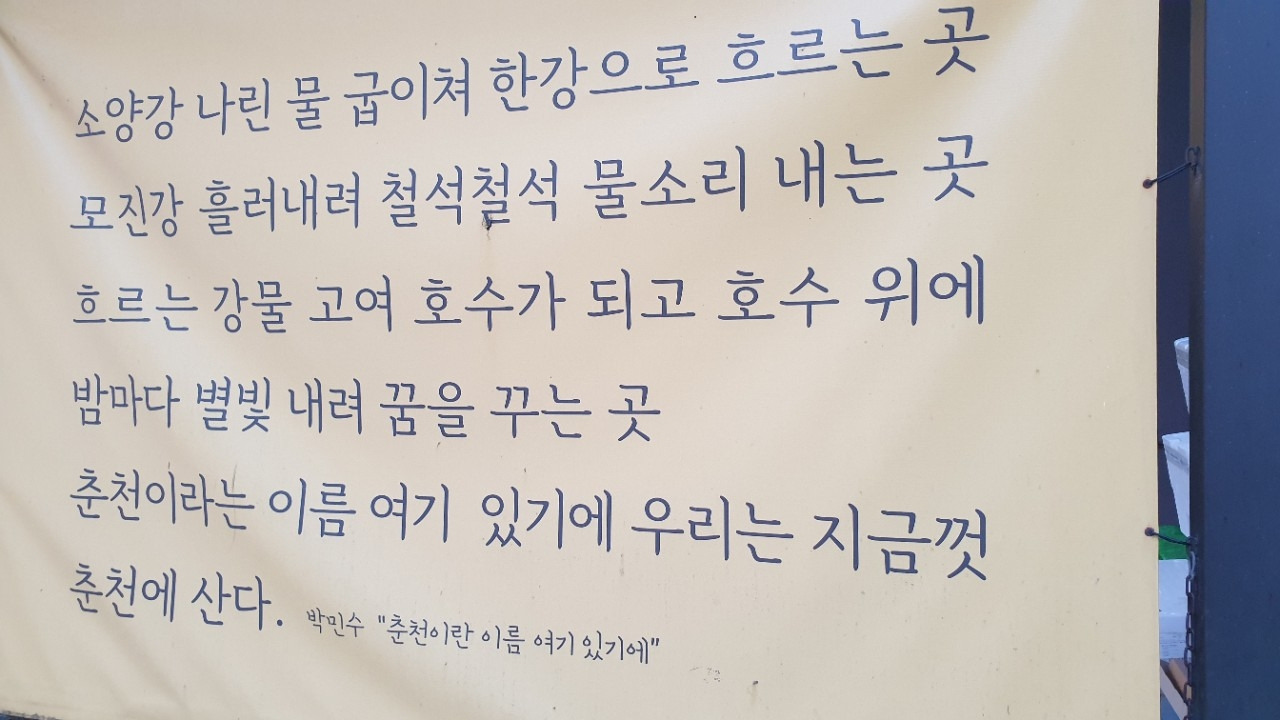 소양강 나린 물 굽이쳐 한강으로 흐르는 곳
모진강 흘러내려 철석철석 물소리 내는 곳
흐르는 강물 고여 호수가 되고 호수 위에
밤마다 별빛 내려 꿈을 꾸는 곳
춘천이라는 이름 여기 있기에 우리는 지금껏
춘천에 산다. 박민수 "춘천이란 이름 여기 있기에"